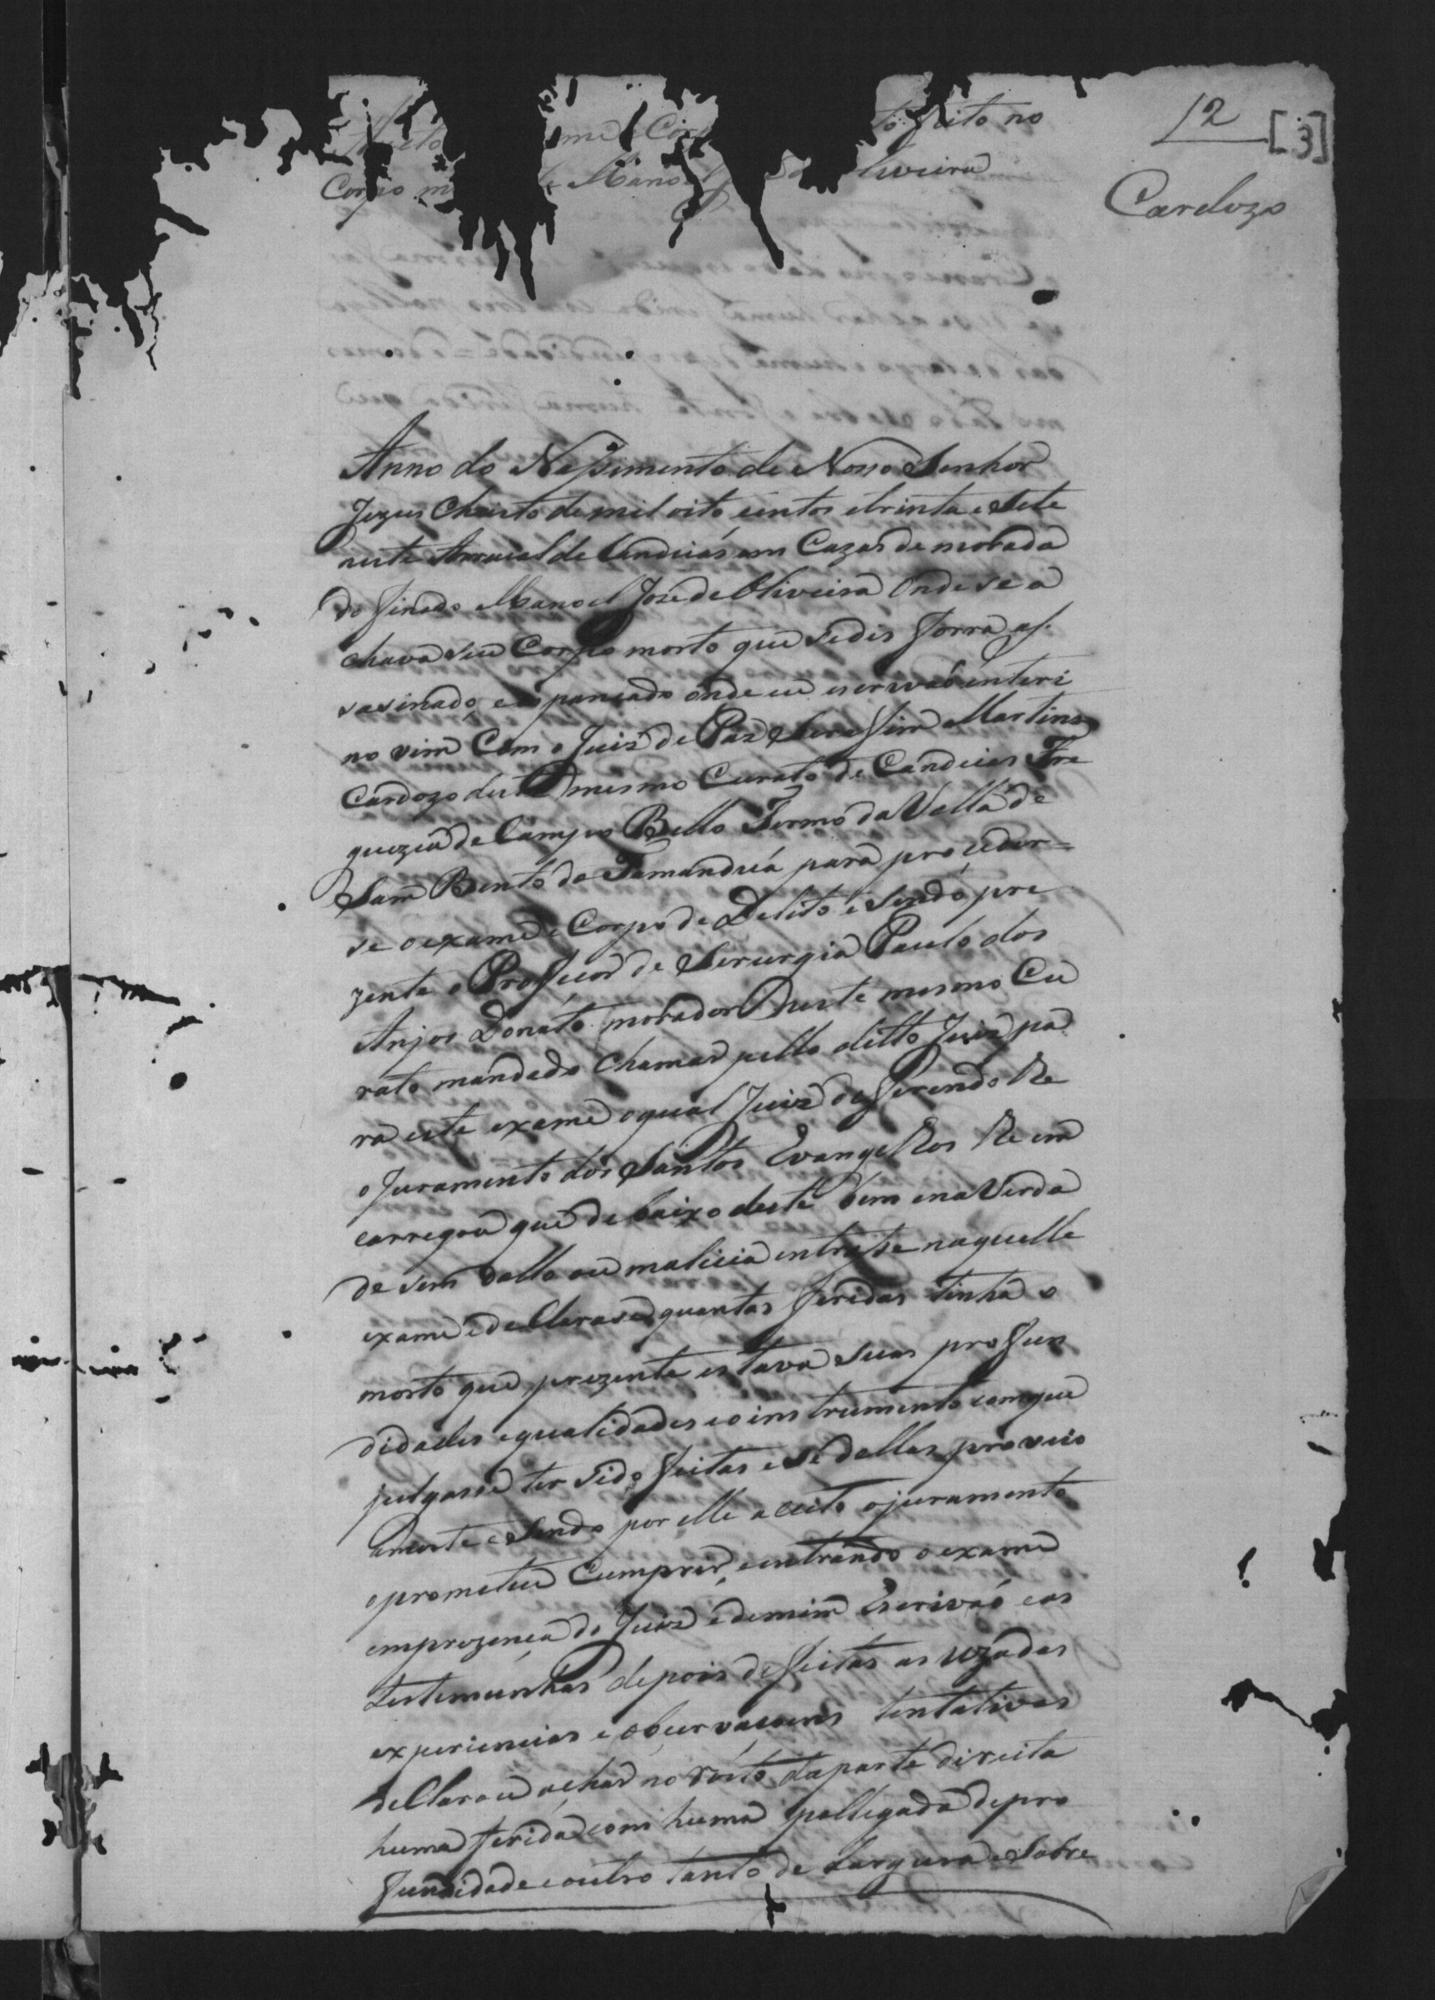 12
[3]
Cardozo
to feito no
Corpo m Manoel liveira
Anno do Nassimento de Nosso Senhor
Jezus Christo de mil oito sentos e trinta e sete
neste Arraial de Candeias em Cazas de morada
do finado Manoel Joze de Oliveira Onde se a
chava seu Corpo morto que se dis forra as
sasinado, e espancado onde eu escrivaõ enteri
no vim Com o Juiz de Paz Serefim Martins
Cardozo deste mesmo Curato de Candeias Fre
guezia de Campo Bello Termo da Vella de
Sam Bento do Tamanduá para proceder=
se o exame e Corpo de Delito e sendo pre
zente o Professor de Serurgia Paulo dos
Anjos Donato morador neste mesmo Cu
rato mandado chamar pello ditto Juiz pa
ra este exame o qual Juiz defferendo lhe
o juramento dos Santos Evangelhos lhe em
carregou que de baixo deste bem e na Verda
de sem dollo ou malicia entrase naquelle
exame e declarase quantas feridas tinha o
morto que prezente estava suas profun
didades e qualidades e o instrumento com que
julgasse ter sido feitas e se dellas proveio
a morte e sendo por elle a ceito o juramento
e prometeu Cumprir, e entrando o exame
em prezença do Juiz e de mim Escrivaõ e as
testemunhas depois de feitas as uzadas
experiencias e observasoens tentativas
declarou achar no rosto da parte direita
huma ferida com huma pollegada de pro
fundidade e outro tanto de Largura e Sobre